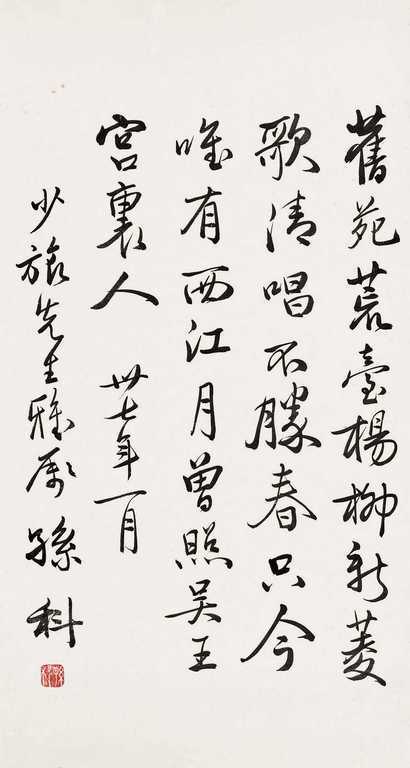 舊苑荒臺楊柳新菱
歌清唱不勝春只今
唯有西江月曾照吴王
宮裏人 卅七年一月
少旅先生雅屬 孫科